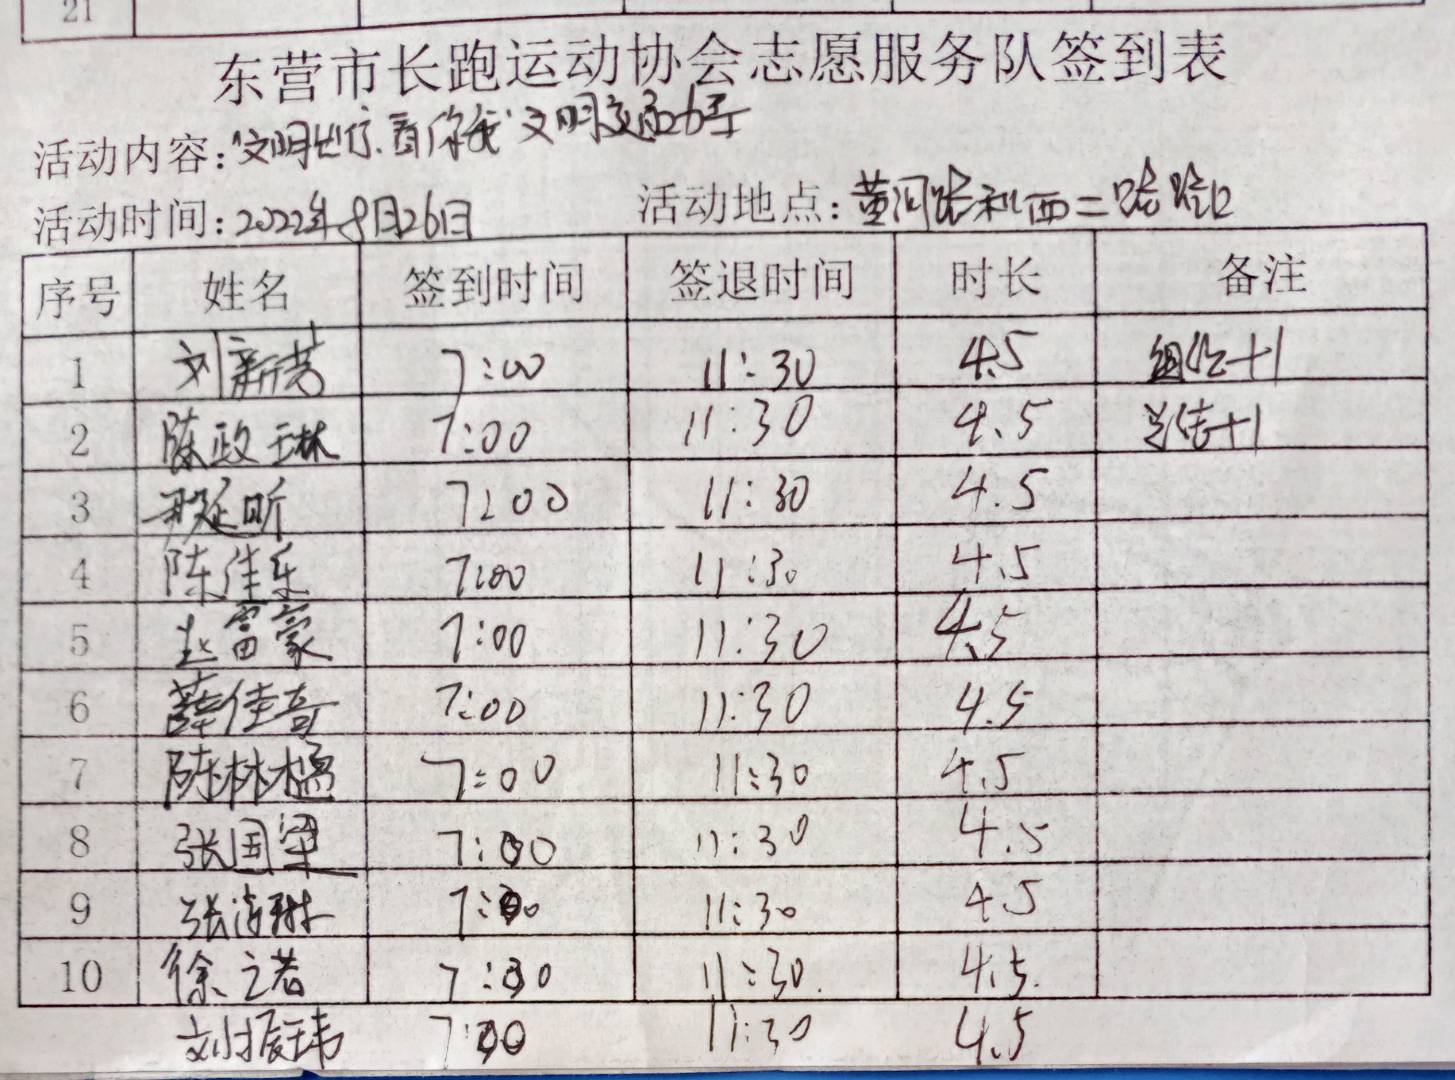 21
东营市长跑运动协会志愿服务队签到表
活动内容:“文明出行、看你我”文明交通劝导
活动时间:2022年8月26日 活动地点:黄河路和西二路路口
序号 姓名 签到时间 签退时间 时长 备注
1 刘新芳 7:00 11:30 4.5 组织+1
2 陈政琳 7:00 11:30 4.5 总结+1
3 延昕 7:00 11:30 4.5
4 陈佳乐 7:00 11:30 4.5
5 赵富豪 7:00 11:30 4.5
6 薛佳奇 7:00 11:30 4.5
7 陈林 7:00 11:30 4.5
8 张国梁 7:00 11:30 4.5
9 张 7:00 11:30 4.5
10 徐之若 7:00 11:30 4.5
刘振玮 7:00 11:30 4.5